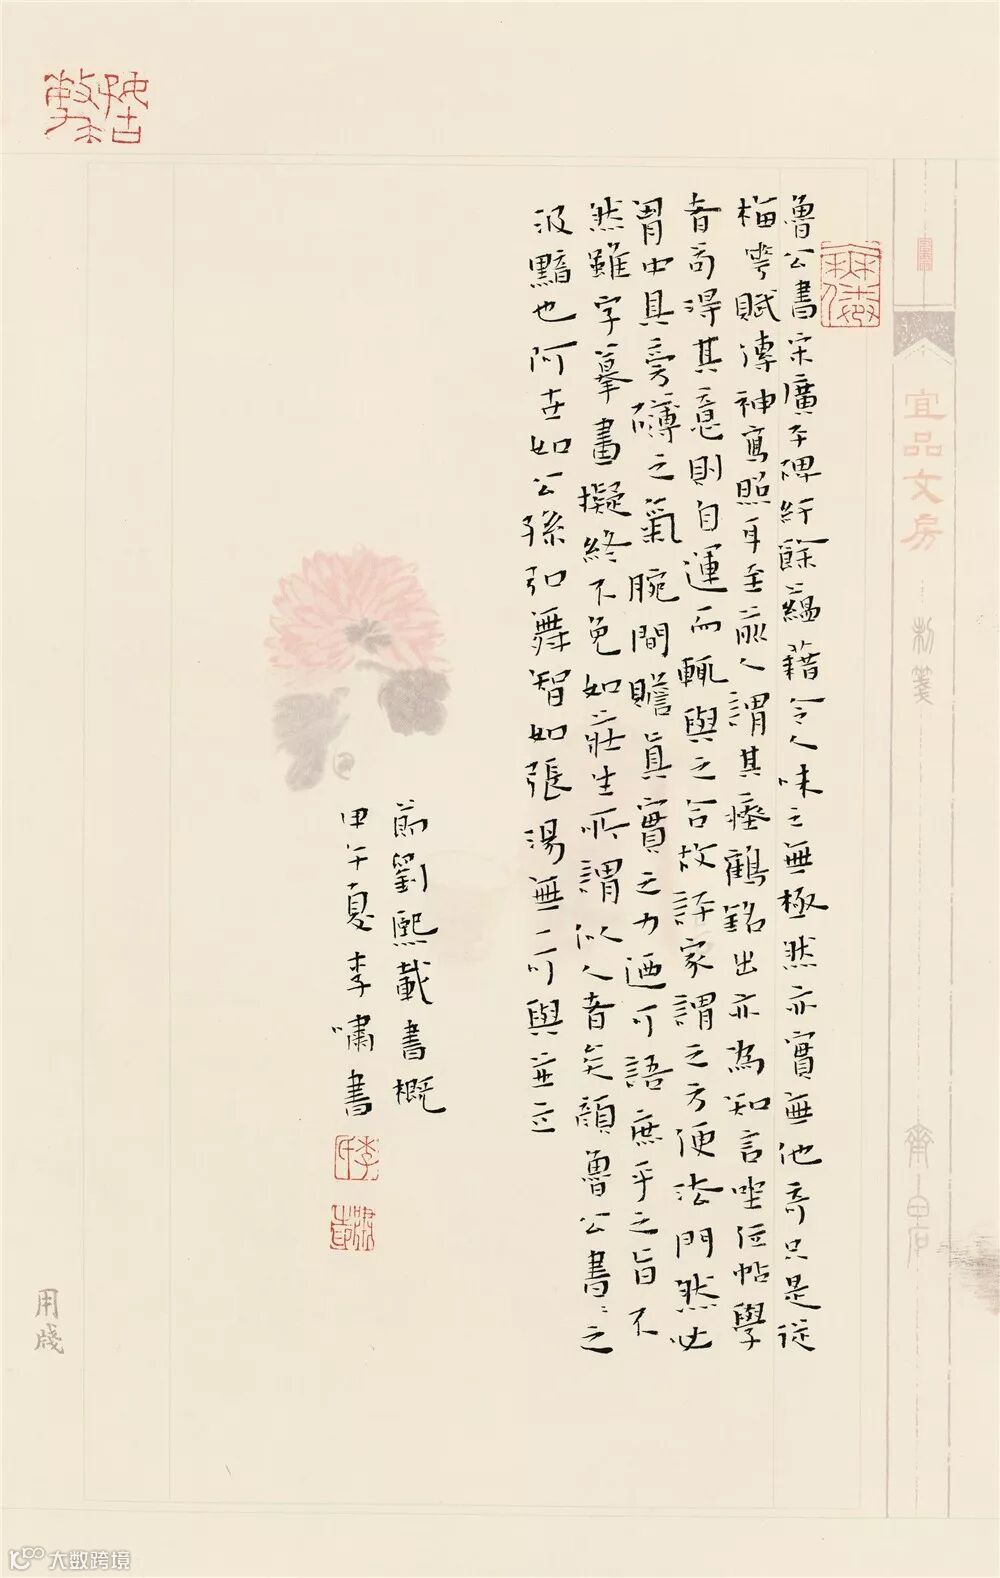 魯公書宋廣平碑紆餘蘊藉令人味之無極然亦實無他奇只是從
梅華賦傳神寫照耳至前人謂其瘞鶴銘出亦為知言坐位帖學
者苟得其意則自運而輒與之合故評家謂之方便法門然必
胷中具旁礴之氣腕間贍真實之力迺可語庶乎之旨不
然雖字摹畫擬終不免如莊生所謂似人者矣顏魯公書〻之
汲黯也阿世如公孫弘舞智如張湯無一可與並立
節劉熙載書概
甲午夏李嘯書
宜品文房
制箋
用牋
大数跨境